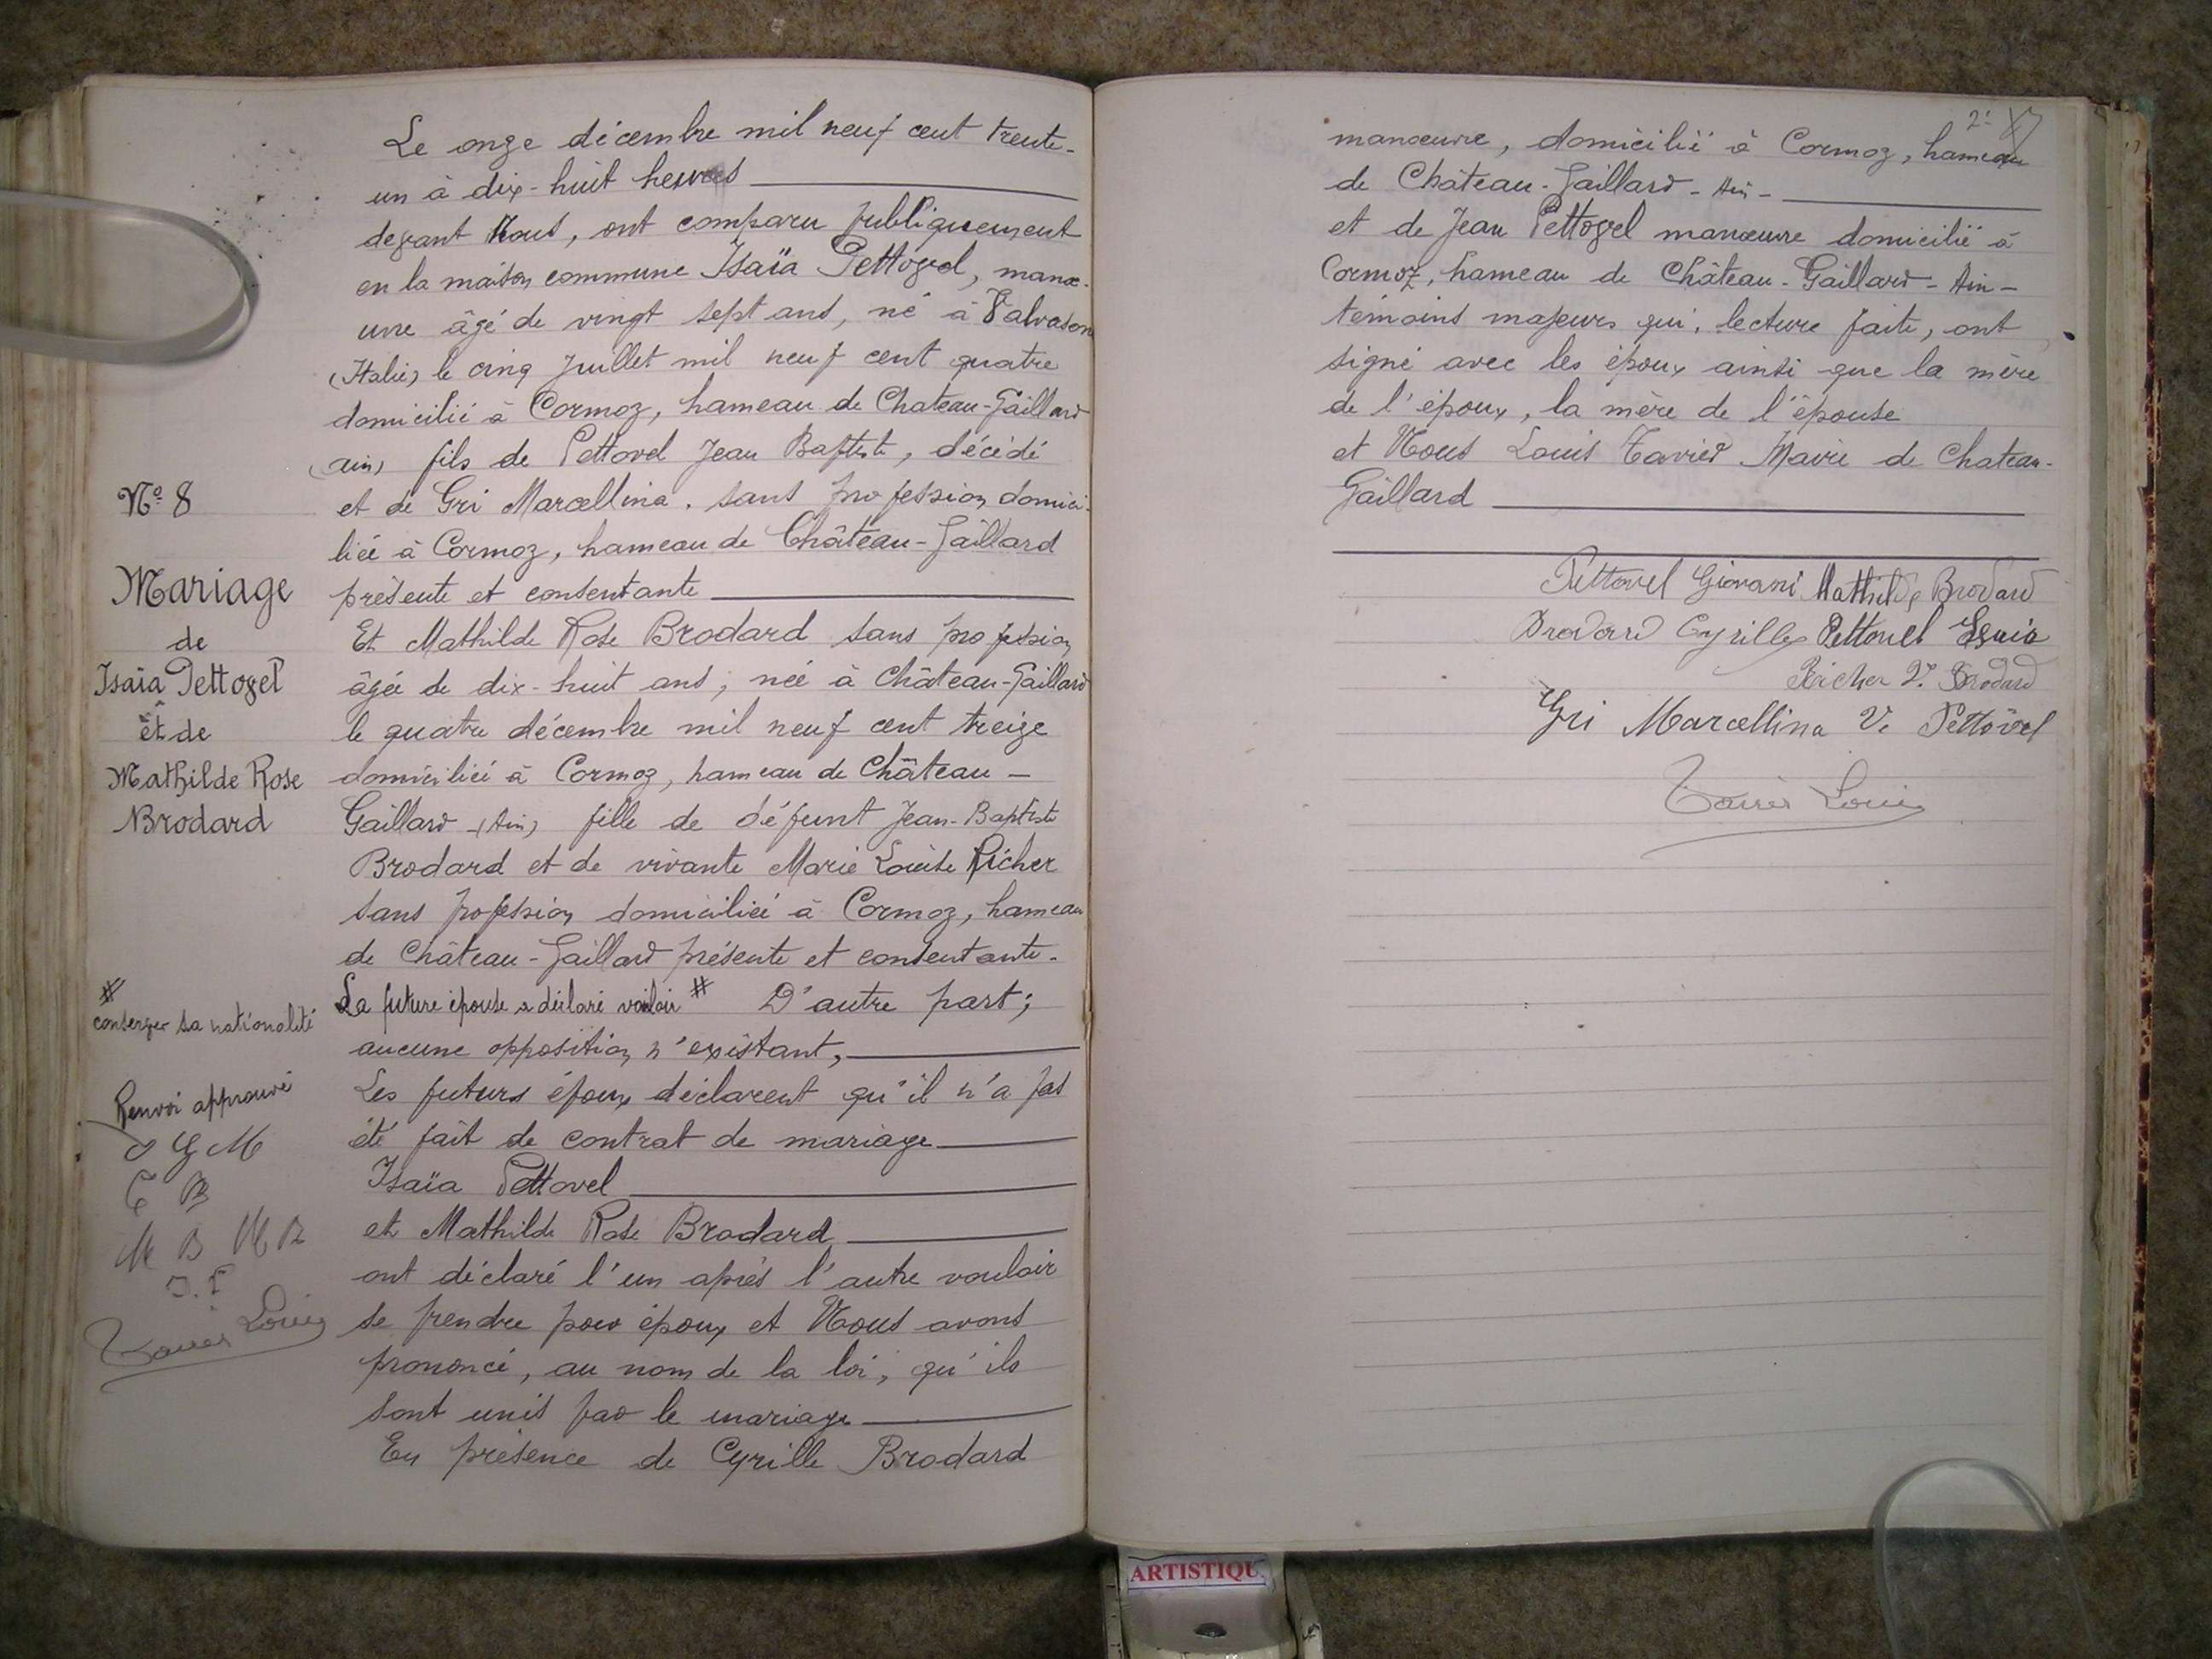 Le onze décembre mil neuf cent trente-
un à dix-huit heures
devant Nous, ont comparu publiquement
en la maison commune Isaïa Pettovel, manœ-
uvre âgé de vingt sept ans, né à Valvason
(Italie) le cinq Juillet mil neuf cent quatre
domicilié à Cormoz, hameau de Chateau-Gaillard
(ain) fils de Pettovel Jean Baptiste, décédé
et de Gri Marcellina, sans profession domici-
liée à Cormoz, hameau de Château-Gaillard
présente et consentante
Et Mathilde Rose Brodard sans profession
âgée de dix-huit ans, née à Château-Gaillard
le quatre décembre mil neuf cent treize
domiciliée à Cormoz, hameau de Château-
Gaillard (Ain) fille de défunt Jean-Baptiste
Brodard et de vivante Marie Louise Richer
sans profession domiciliée à Cormoz, hameau
de Château-Gaillard présente et consentante.
La future épouse a déclaré vouloir # D'autre part;
aucune opposition n'existant,
Les futurs époux déclarent qu'il n'a pas
été fait de contrat de mariage
Isaïa Pettovel
et Mathilde Rose Brodard
ont déclaré l'un après l'autre vouloir
se prendre pour époux et Nous avons
prononcé, au nom de la loi, qu'ils
sont unis par le mariage
En présence de Cyrille Brodard
No 8
Mariage
de
Isaïa Pettovel
et de
Mathilde Rose
Brodard
#
conserver sa nationalité
Renvoi approuvé
G M
C B
M B M B
J. P
Tavier Louis
manœuvre, domicilié à Cormoz, hameau
de Château-Gaillard - Ain -
et de Jean Pettovel manœuvre domicilié à
Cormoz, hameau de Château-Gaillard - Ain -
témoins majeurs qui, lecture faite, ont
signé avec les époux ainsi que la mère
de l'époux, la mère de l'épouse
et Nous Louis Tavier Maire de Chateau-
Gaillard
Pettovel Giovani Mathilde Brodard
Brodard Cyrille Pettovel Isaia
Richer Ve Brodard
Gri Marcellina Ve Pettovel
Tavier Louis
ARTISTIQU